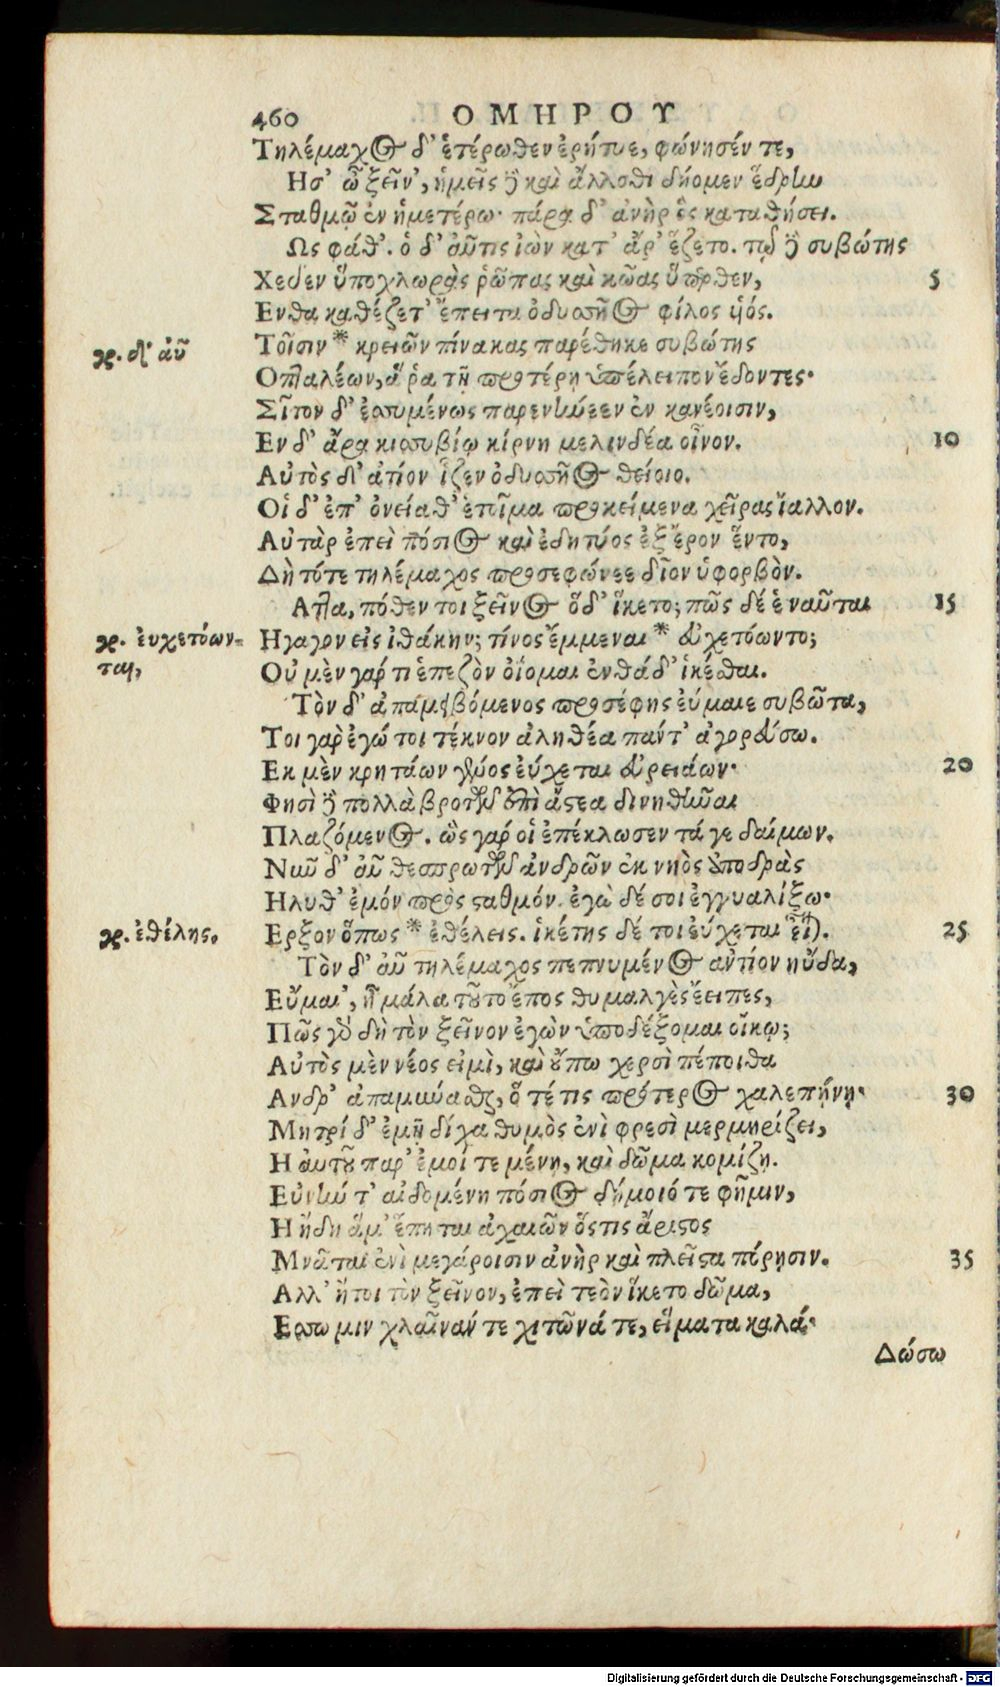 460 ΟΜΗΡΟΥ
Τηλέμαχος δ' ἑτέρωθεν ἐρήτυε, φώνησέν τε,
Ησ' ὦ ξεῖν', ἡμεῖς δὲ καὶ ἄλλοθι δήομεν ἕδρην
Σταθμῷ ἐν ἡμετέρῳ· πάρα δ' ἀνὴρ ὃς καταθήσει.
Ως φάθ'. ὁ δ' αὖτις ἰὼν κατ' ἄρ' ἕζετο. τῷ δὲ συβώτης
Χεῦεν ὕπο χλωρὰς ῥῶπας καὶ κῶας ὕπερθεν, 5
Ενθα καθέζετ' ἔπειτα ὀδυσσῆος φίλος υἱός.
γρ. δ' αὖ
Τοῖσιν * κρειῶν πίνακας παρέθηκε συβώτης
Οπταλέων, ἅ ῥα τῇ προτέρῃ ὑπέλειπον ἔδοντες·
Σῖτον δ' ἐσσυμένως παρενήνεεν ἐν κανέοισιν,
Εν δ' ἄρα κισσυβίῳ κίρνη μελινδέα οἶνον. 10
Αὐτὸς δ' ἀτίον ἷζεν ὀδυσσῆος θείοιο.
Οἱ δ' ἐπ' ὀνείαθ' ἑτοῖμα προκείμενα χεῖρας ἴαλλον.
Αὐτὰρ ἐπεὶ πόσιος καὶ ἐδητύος ἐξ ἔρον ἕντο,
Δὴ τότε τηλέμαχος προσεφώνεε δῖον ὑφορβὸν.
Αττα, πόθεν τοι ξεῖνος ὅδ' ἵκετο; πῶς δέ ἑ ναῦται 15
γρ. ἐυχετόων-
ται,
Ηγαγον εἰς ἰθάκην; τίνος ἔμμεναι * εὐχετόωντο;
Οὐ μὲν γάρ τί ἑ πεζὸν ὀΐομαι ἐνθάδ' ἱκέσθαι.
Τὸν δ' ἀπαμειβόμενος προσέφης εὔμαιε συβῶτα,
Τοι γὰρ ἐγώ τοι τέκνον ἀληθέα πάντ' ἀγορεύσω.
Εκ μὲν κρητάων γένος εὔχεται εὐρειάων· 20
Φησὶ δὲ πολλὰ βροτῶν ἐπὶ ἄστεα δινηθῆναι
Πλαζόμενος. ὣς γάρ οἱ ἐπέκλωσεν τά γε δαίμων.
Νῦν δ' αὖ θεσπρωτῶν ἀνδρῶν ἐκ νηὸς ὑποδρὰς
Ηλυθ' ἐμόν πρὸς σταθμόν. ἐγὼ δέ σοι ἐγγυαλίξω·
γρ. ἐθέλης.
Ερξον ὅπως * ἐθέλεις. ἱκέτης δέ τοι εὔχεται εἶναι. 25
Τὸν δ' αὖ τηλέμαχος πεπνυμένος αὐτίον ηὔδα,
Εὔμαι', ἦ μάλα τοῦτο ἔπος θυμαλγὲς ἔειπες,
Πῶς γὰρ δὴ τὸν ξεῖνον ἐγὼν ὑποδέξομαι οἴκῳ;
Αὐτὸς μὲν νέος εἰμὶ, καὶ οὔπω χερσὶ πέποιθα
Ανδρ' ἀπαμύνασθαι, ὅτε τις πρότερος χαλεπήνῃ· 30
Μητρί δ' ἐμῇ δίχα θυμὸς ἐνὶ φρεσὶ μερμηρίζει,
Η αὐτοῦ παρ' ἐμοί τε μένῃ, καὶ δῶμα κομίζῃ.
Εὐνήν τ' αἰδομένη πόσιος δήμοιό τε φῆμιν,
Η ἤδη ἅμ' ἕπηται ἀχαιῶν ὅστις ἄριστος
Μνᾶται ἐνὶ μεγάροισιν ἀνὴρ καὶ πλεῖστα πόρῃσιν. 35
Αλλ' ἤτοι τὸν ξεῖνον, ἐπεὶ τεὸν ἵκετο δῶμα,
Εσσω μιν χλαῖνάν τε χιτῶνά τε, εἵματα καλά·
Δώσω
Digitalisierung gefördert durch die Deutsche Forschungsgemeinschaft - DFG